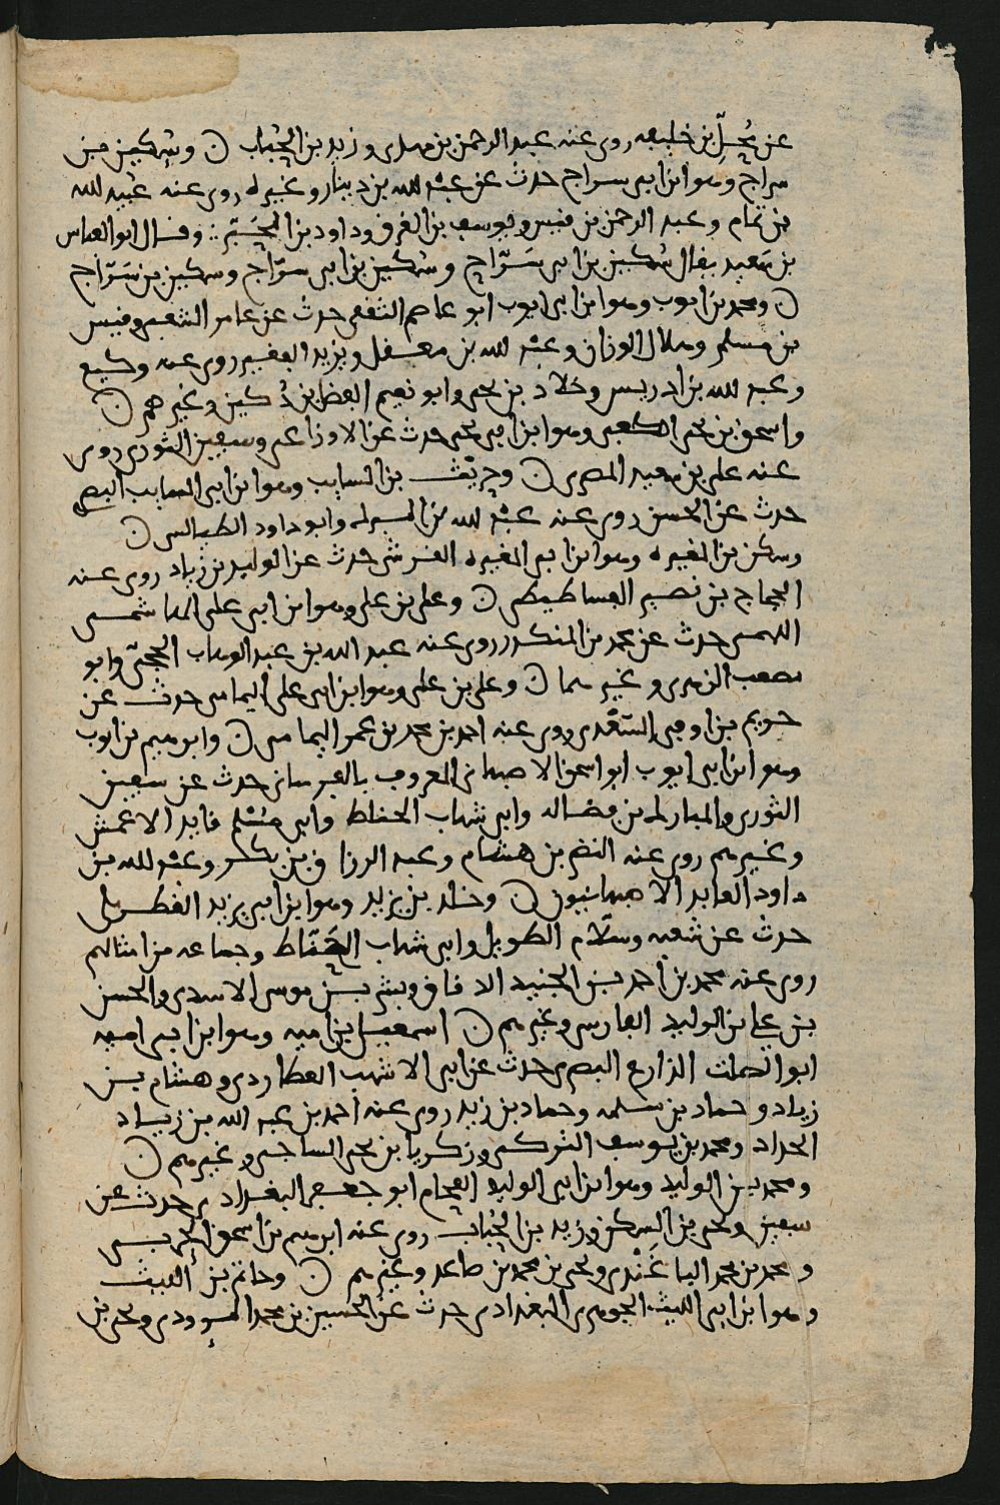 عن مُحِلّ بن خليفه روى عنه عبد الرحمن بن مهدى وزيد بن الحُباب ں وسُكين بن
سراج وهو ابن ابى سراج حدث عن عبد الله بن دينار وغيره روى عنه عبيد الله
بن تمام وعبد الرحمن بن قيس ويوسف بن الغرق وداود بن المُحَبّر وقال ابو العباس
بن سَعيد يقال سُكين بن ابى سَرّاج وسُكين بن ابى سرّاج وسكين بن سَرّاج
ں ومحمد بن ايوب وهو ابن ابى ايوب ابو عاصم الثقفى حدث عن عامر الشعبى وقيس
بن مسلم وهلال الوزان وعبد الله بن معقل ويزيد الفقير روى عنه وكيع
وعبد الله بن ادريس وخلاد بن يحيى وابو نعيم الفضل بن دُكين وغيرهم ں
واسحق بن يحيى الكعبى وهو ابن ابى يحيى حدث عن الاوزاعى وسفين الثورى روى
عنه على بن معبد المصرى ں وحريث بن السايب وهو ابن ابى السايب البصرى
حدث عن الحسن روى عنه عبد الله بن المبرك وابو داود الطيالسى ں
وسكن بن المغيره وهو ابن ابى المغيره القرشى حدث عن الوليد بن زياد روى عنه
الحجاج بن نصير الفساطيطى ں وعلى بن على وهو ابن ابى على الهاشمى
اللهبى حدث عن محمد بن المنكدر روى عنه عبد الله بن عبد الوهاب الحجبىّ وابو
مصعب الزهرى وغيرهما ں وعلى بن على وهو ابن ابى على اليمامى حدث عن
حريم بن اوفى السَعْدى روى عنه احمد بن محمد بن عمر اليمامى ں وابرهيم بن ايوب
وهو ابن ابى ايوب ابو اسحق الاصبهانى المعروف بالفرسانى حدث عن سفين
الثورى والمبارك بن فضاله وابى شهاب الحناط وابى مُسْلم قايد الاعمش
وغيرهم روى عنه النضر بن هشام وعبد الرزاق بن بكر وعبد الله بن
داود العابد الاصبهانيون ں وخلد بن يزيد وهو ابن ابى يزيد القطربلى
حدث عن شعبه وسلّام الطويل وابى شهاب الحَنّاط وجماعه من امثالهم
روى عنه محمد بن أحمد بن الجنيد الدقاق وبشر بن موسى الاسدى والحسن
بن على بن الوليد الفارسى وغيرهم ں اسمعيل بن اميه وهو ابن ابى اميه
ابو الصلت الذارع البصرى حدث عن ابى الاشهب العطاردى وهشام بن
زياد وحماد بن سلمه وحماد بن زيد روى عنه أحمد بن عبد الله بن زياد
الحداد ومحمد بن يوسف التركى وزكريا بن يحيى الساجى وغيرهم ں
ومحمد بن الوليد وهو ابن ابى الوليد الفحام ابو جعفر البغدادى حدث عن
سفين ويحيى بن السكن وزيد بن الحُباب روى عنه ابرهيم بن اسحق الحربى
ومحمد بن محمد الباغَنْدى ويحيى بن محمد بن صاعد وغيرهم ں وحاتم بن الليث
وهو ابن ابى الليث الجوهرى البغدادى حدث عن الحسين بن محمد المرودى ويحيى بن